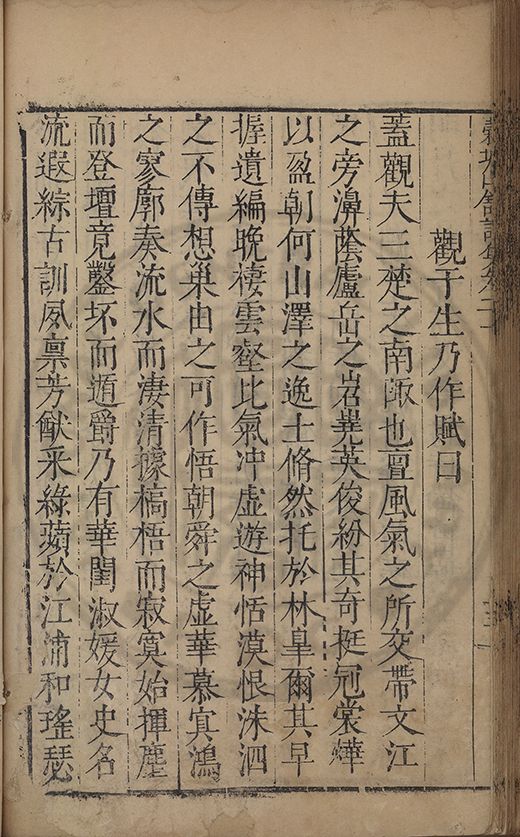 觀于生乃作賦曰
蓋觀夫三楚之南陬也亶風氣之所交帶文江
之旁濞蔭廬岳之岧嶤英俊紛其奇挺冠裳燁
以盈朝何山澤之逸士翛然托於林臯爾其早
握遺編晚棲雲壑比氣冲虛遊神恬漠恨洙泗
之不傳想巢由之可作悟朝舜之虛華慕㝠鴻
之寥廓奏流水而淒清據槁梧而寂寞始揮麈
而登壇竟鑿坏而遁爵乃有華閨淑媛女史名
流遐綜古訓夙禀芳猷采綠蘋於江浦和瑤瑟